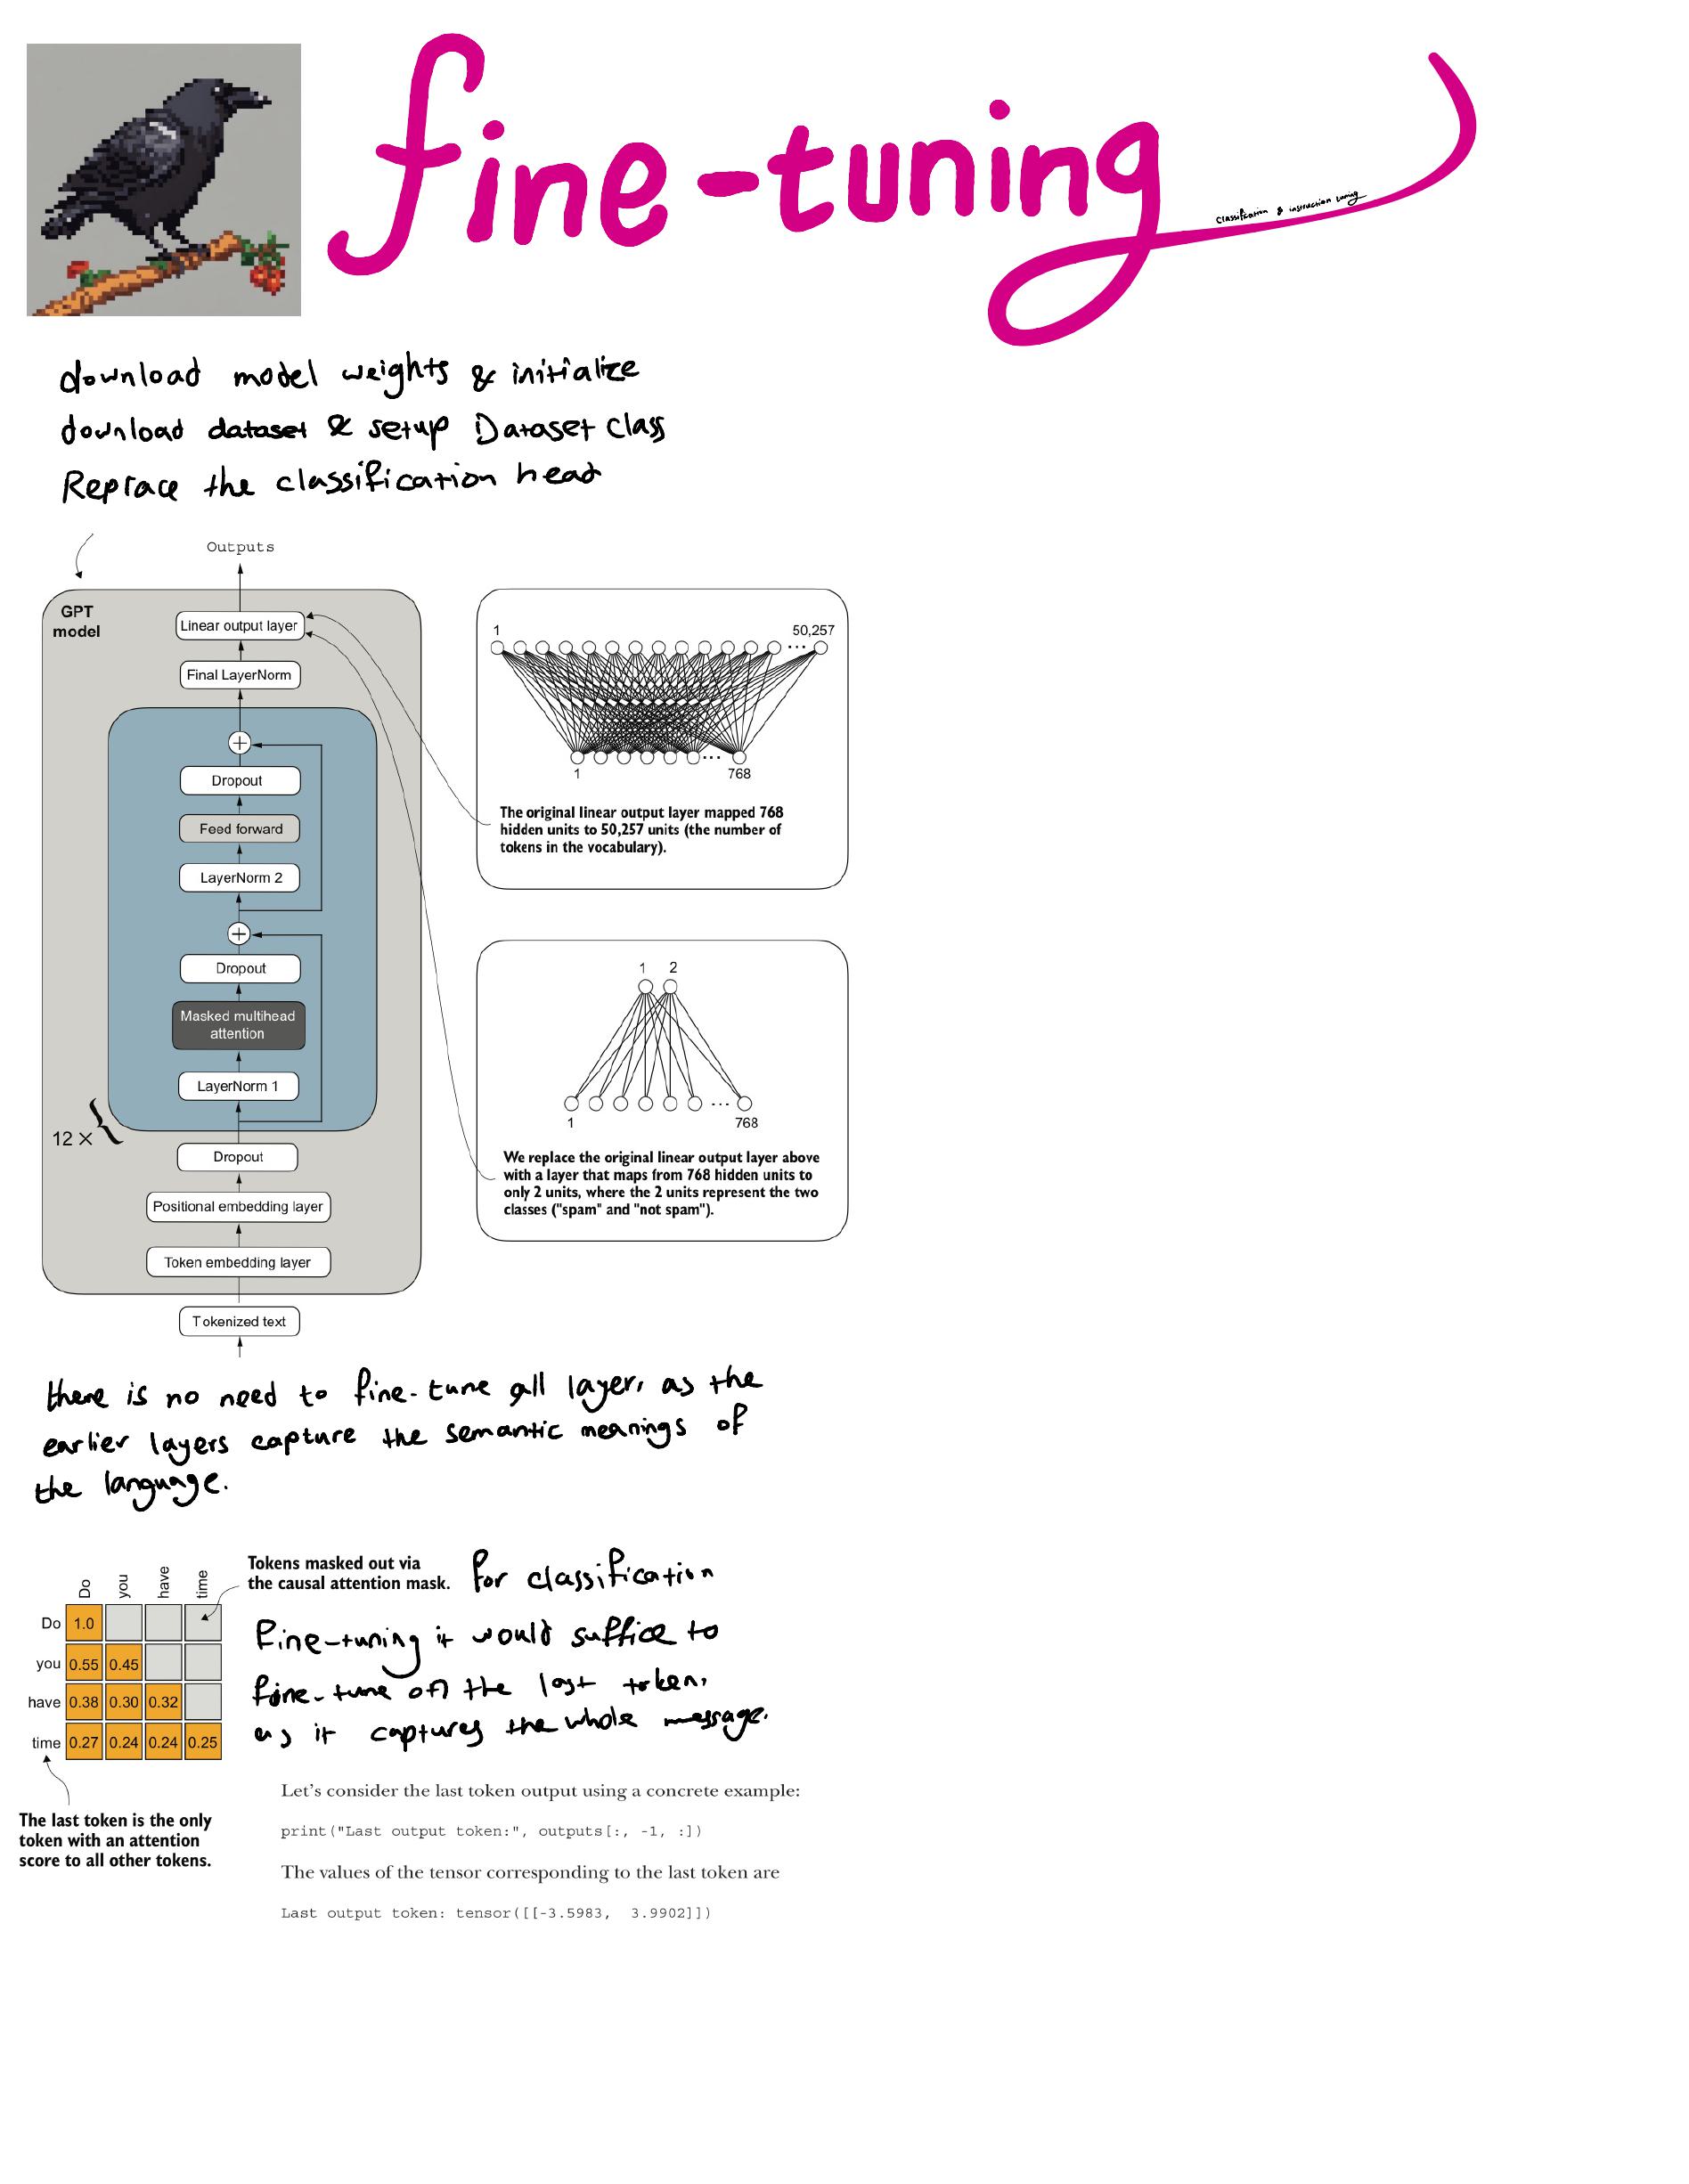 fine-tuning
classification & instruction tuning
download model weights & initialize
download dataset & setup Dataset class
Replace the classification head
Outputs
GPT
model
Linear output layer
Final LayerNorm
Dropout
Feed forward
LayerNorm 2
Dropout
Masked multihead
attention
LayerNorm 1
12 ×
Dropout
Positional embedding layer
Token embedding layer
Tokenized text
1 50,257
...
...
1 768
The original linear output layer mapped 768
hidden units to 50,257 units (the number of
tokens in the vocabulary).
1 2
...
1 768
We replace the original linear output layer above
with a layer that maps from 768 hidden units to
only 2 units, where the 2 units represent the two
classes ("spam" and "not spam").
there is no need to fine-tune all layer, as the
earlier layers capture the semantic meanings of
the language.
Tokens masked out via
the causal attention mask.
Do you have time
Do 1.0
you 0.55 0.45
have 0.38 0.30 0.32
time 0.27 0.24 0.24 0.25
The last token is the only
token with an attention
score to all other tokens.
for classification
Fine-tuning it would suffice to
fine-tune on the last token,
as it captures the whole message.
Let's consider the last token output using a concrete example:
print("Last output token:", outputs[:, -1, :])
The values of the tensor corresponding to the last token are
Last output token: tensor([[-3.5983, 3.9902]])